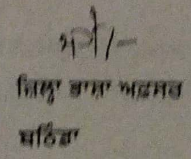 ਸਹੀ/-
ਜਿਲ੍ਹਾ ਭਾਸ਼ਾ ਅਫਸਰ
ਬਠਿੰਡਾ